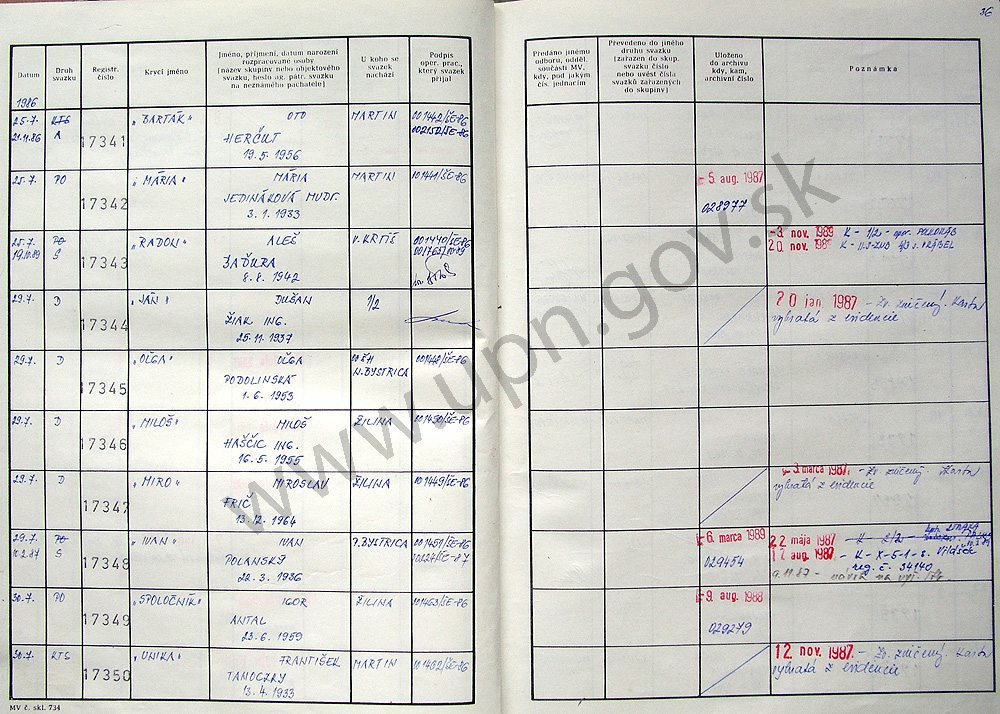 36
Datum
Druh svazku
Registr. číslo
Krycí jméno
Jméno, příjmení, datum narození
rozpracované osoby
(název skupiny nebo objektového
svazku, heslo ag. pátr. svazku
na neznámého pachatele)
U koho se
svazek
nachází
Podpis
oper. prac.,
který svazek
přijal
Předáno jinému
odboru, odděl.
součásti MV,
kdy, pod jakým
čís. jednacím
Převedeno do jiného
druhu svazku
(zařazen do skup.
svazku číslo
nebo uvést čísla
svazků zařazených
do skupiny)
Uloženo
do archivu
kdy, kam,
archivní číslo
Poznámka
1986
25.7. KTS 17341 "BARTÁK" OTO MARTIN 001442/ŠE-86
21.11.86 A HERČÚT 002150/ŠE-86
19.5.1956
25.7. PO 17342 "MÁRIA" MÁRIA MARTIN 001441/ŠE-86 5. aug. 1987
JEDINÁKOVÁ MUDr. 028977
3.1.1933
25.7. PO 17343 "RADON" ALEŠ V. KRTÍŠ 001440/ŠE-86 -3. nov. 1989 K - 1/2 - oper.
19.10.89 S BAĎURA 20. nov. 1989 K -
8.8.1942
29.7. D 17344 "JÁN" DUŠAN 1/2 20 jan. 1987 - Zv. zničený. Karta
ŽIAK ING. vybratá z evidencie
25.11.1937
29.7. D 17345 "OĽGA" OĽGA 001448/ŠE-86
PODOLINSKÁ N. BYSTRICA
1.6.1953
29.7. D 17346 "MILOŠ" MILOŠ ŽILINA 001450/ŠE-86
HAŠČIC ING.
16.5.1955
29.7. D 17347 "MIRO" MIROSLAV ŽILINA 001449/ŠE-86 3. marca 1987. - Zv. zničený. Karta
FRIČ vybratá z evidencie
13.12.1964
29.7. PO 17348 "IVAN" IVAN P. BYSTRICA 001451/ŠE-86 6. marca 1989 22 mája 1987 - K - 2/2 -
11.2.87 S POLANSKÝ 029454 17 aug. 1987 - K - X-5-1-s. Vildšek
22.3.1936 reg. č. 34140
9.11.87 -
30.7. PO 17349 "SPOLOČNÍK" IGOR ŽILINA 001463/ŠE-86 9. aug. 1988
ANTAL 029279
23.6.1959
30.7. KTS 17350 "UNIKA" FRANTIŠEK MARTIN 001462/ŠE-86 12. nov. 1987 - Zv. zničený. Karta
TANOCZKY vybratá z evidencie
13.4.1933
MV č. skl. 734
www.upn.gov.sk